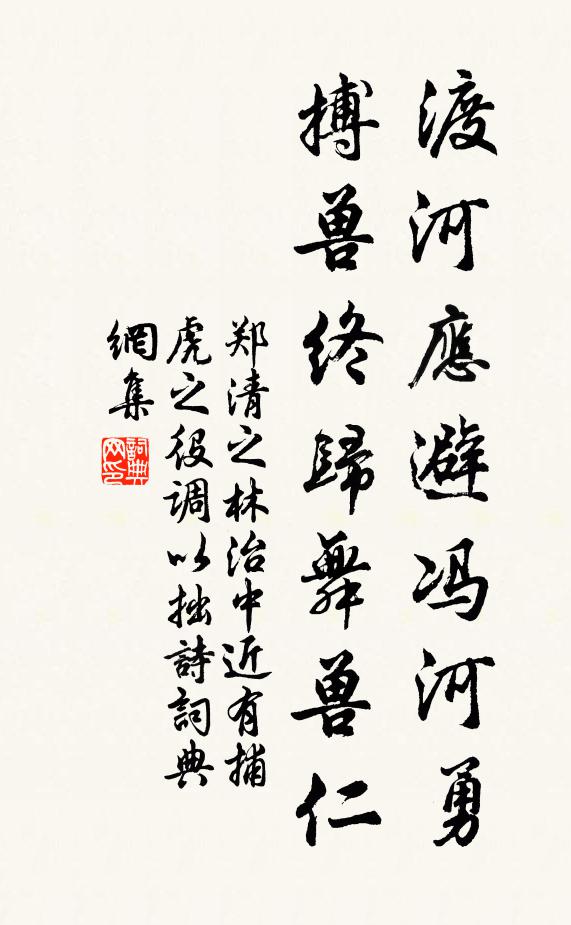 渡河應避冯河勇
搏兽终歸舞兽仁
郑清之林治中近有捕
虎之役調以拙詩詞典
網集
詞典网印